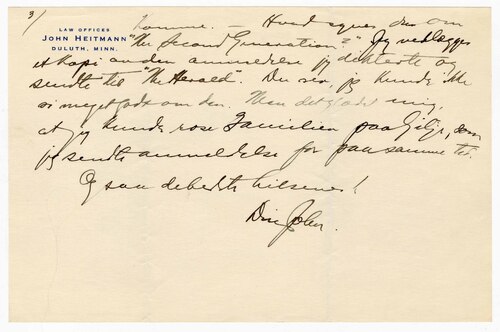 3/
LAW OFFICES
JOHN HEITMANN
DULUTH, MINN.
komme. Hvad synes du om
"The Second Generation"? Jeg vedlægger
et kopi anden anmeldelse jeg dikterte og
sendte til "The Herald". Du ser, jeg kunde ikke
si meget godt om den. Men det glædet mig,
at jeg kunde rose Familien paa Gilje, som
jeg sendte anmeldelse for paa samme tid.
Og saa de bedste hilsener!
Din John.